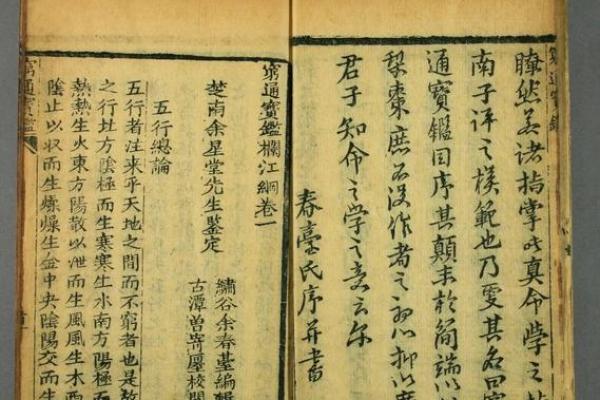 窮通寶鑑
瞭然若諸指掌此真命學之
南子評之模範也乃更其名曰窮
通寶鑑因序其顛末於簡端以
梨棗庶不沒作者之初心抑以廣
君子知命之學之意云尔
春臺氏序并書
窮通寶鑑欄江網卷一
楚南余星堂先生鑒定
繡谷余春臺編輯
古潭曾寄廛校
五行總論
五行者注來乎天地之間而不窮者也是故
之行北方陰極而生寒寒生水南方陽極而
熱熱生火東方陽散以泄而生風風生木西
陰止以收而生燥燥生金中央陰陽交而生
窮通寶鑑